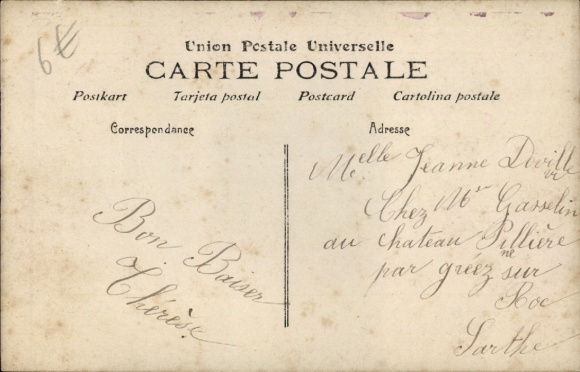 6€
Union Postale Universelle
CARTE POSTALE
Postkart Tarjeta postal Postcard Cartolina postale
Correspondance
Adresse
Bon Baiser
Thérèse
Melle Jeanne
Chez Mr Gasselin
au chateau Pillière
par gréez sur
Roc
Sarthe